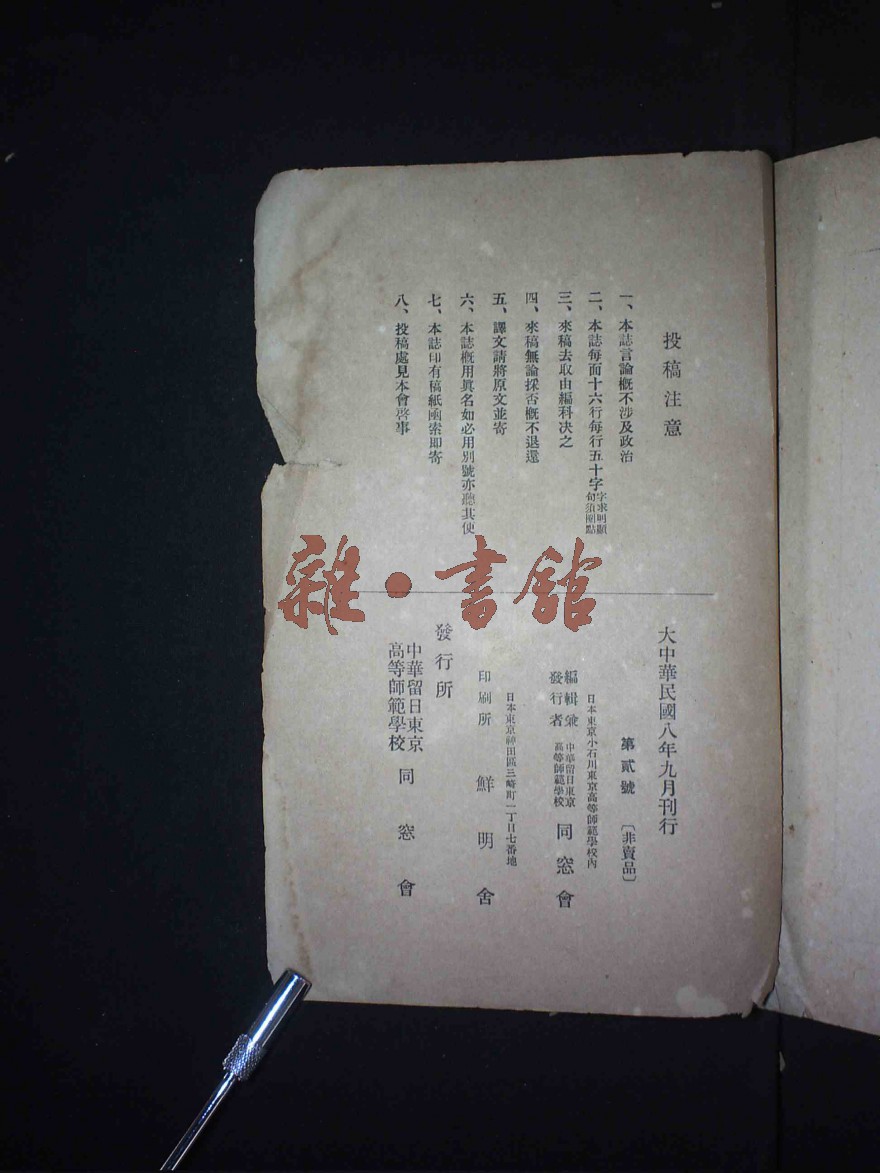 投稿注意
一、本誌言論概不涉及政治
二、本誌每面十六行每行五十字字求明顯句須圈點
三、來稿去取由編科决之
四、來稿無論採否概不退還
五、譯文請將原文並寄
六、本誌概用眞名如必用別號亦聽其便
七、本誌印有稿紙函索即寄
八、投稿處見本會啓事
大中華民國八年九月刊行
第貳號 〔非賣品〕
日本東京小石川東京高等師範學校內
編輯兼發行者 中華留日東京高等師範學校 同窓會
日本東京神田區三崎町一丁目七番地
印刷所 鮮明舍
發行所
中華留日東京高等師範學校 同窓會
雜·書館